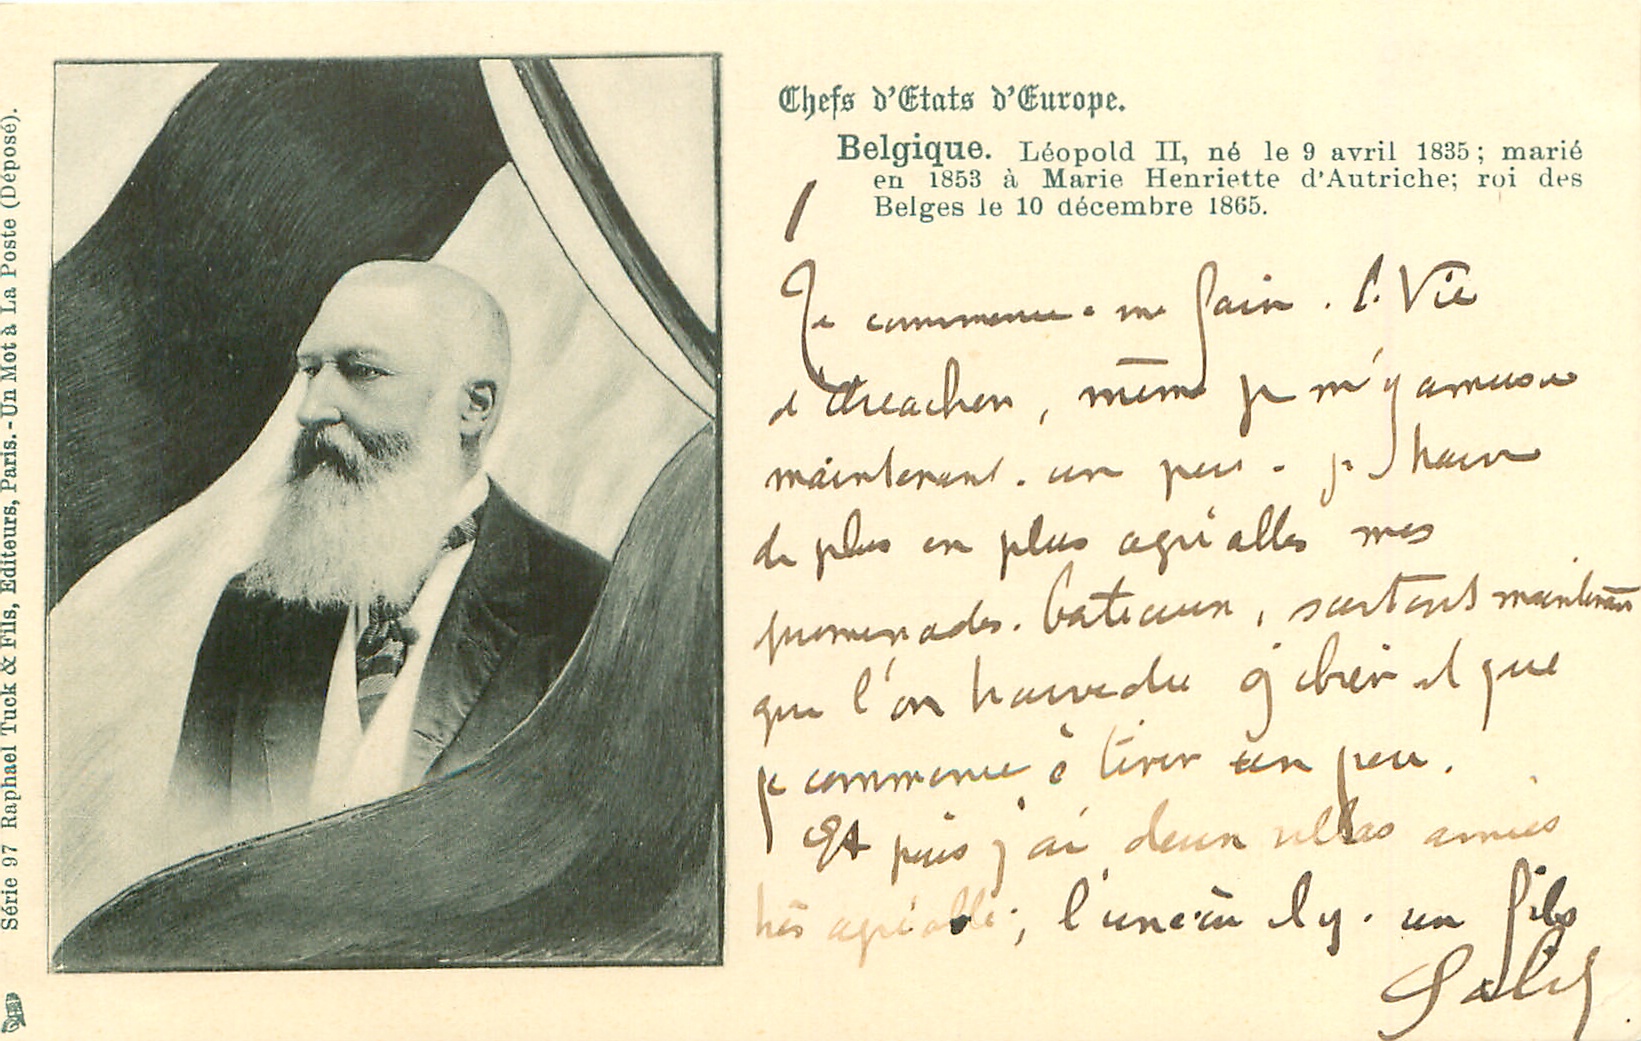 Série 97 Raphael Tuck & Fils, Editeurs, Paris.-Un Mot à La Poste (Déposé).
Chefs d'Etats d'Europe.
Belgique. Léopold II, né le 9 avril 1835; marié
en 1853 à Marie Henriette d'Autriche; roi des
Belges le 10 décembre 1865.
Je commence a me fair a la Vie
d'Arcachon, même je m'y amuse
maintenant un peu. je trouve
de plus en plus agréables mes
promenades bateaux, surtout maintenant
que l'on trouve du gibier et que
je commence à tirer un peu.
Et puis j'ai deux villas amies
très agréable; l'une où il y a un fils